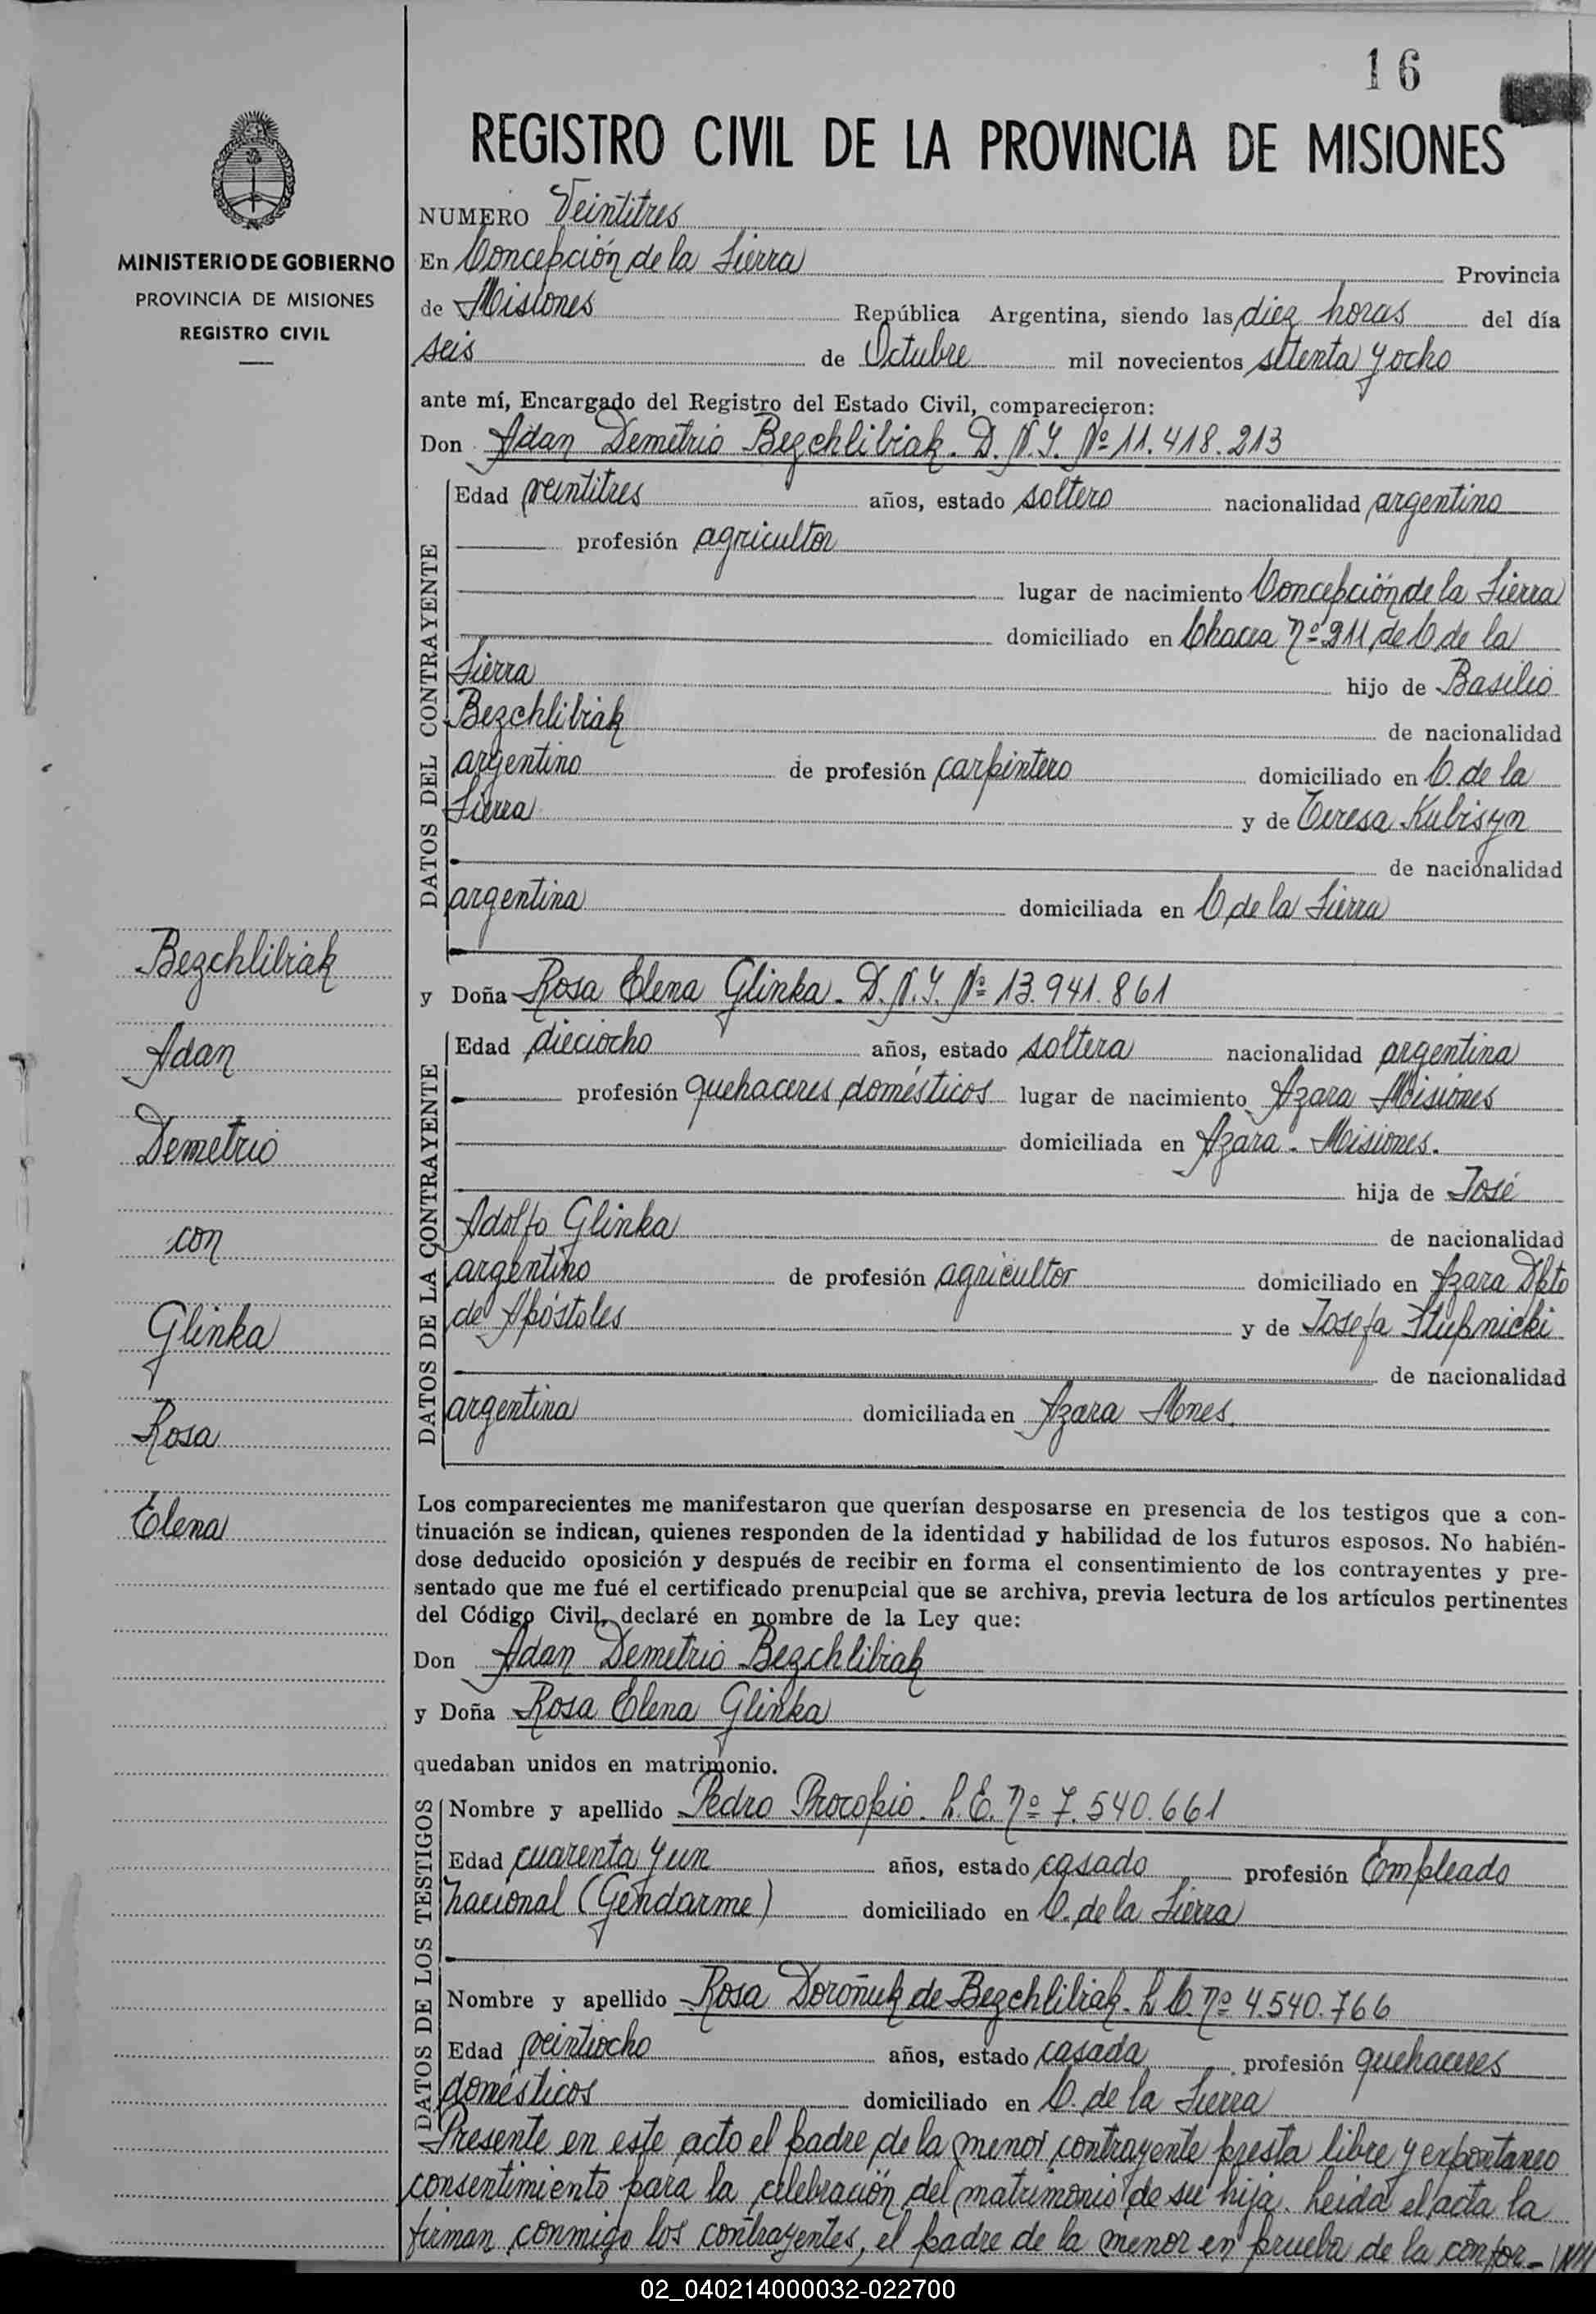 16
REGISTRO CIVIL DE LA PROVINCIA DE MISIONES
MINISTERIO DE GOBIERNO
PROVINCIA DE MISIONES
REGISTRO CIVIL
NUMERO Veintitres
En Concepción de la Sierra Provincia
de Misiones República Argentina, siendo las diez horas del día
seis de Octubre mil novecientos setenta y ocho
ante mí, Encargado del Registro del Estado Civil, comparecieron:
Don Adan Demetrio Bezchlibiak. D.N.I. Nº 11.418.213
DATOS DEL CONTRAYENTE
Edad veintitres años, estado soltero nacionalidad argentino
profesión agricultor
lugar de nacimiento Concepción de la Sierra
domiciliado en Chacra nº 211 de C de la
Sierra hijo de Basilio
Bezchlibiak de nacionalidad
argentino de profesión carpintero domiciliado en C. de la
Sierra y de Teresa Kubisyn
de nacionalidad
argentina domiciliada en C de la Sierra
y Doña Rosa Elena Glinka. D.N.I. Nº 13.941.861
DATOS DE LA CONTRAYENTE
Edad dieciocho años, estado soltera nacionalidad argentina
profesión quehaceres domésticos lugar de nacimiento Azara Misiones
domiciliada en Azara - Misiones.
hija de José
Adolfo Glinka de nacionalidad
argentino de profesión agricultor domiciliado en Azara Dpto
de Apóstoles y de Josefa Stupnicki
de nacionalidad
argentina domiciliada en Azara Mnes.
Bezchlibiak
Adan
Demetrio
con
Glinka
Rosa
Elena
Los comparecientes me manifestaron que querían desposarse en presencia de los testigos que a con-
tinuación se indican, quienes responden de la identidad y habilidad de los futuros esposos. No habién-
dose deducido oposición y después de recibir en forma el consentimiento de los contrayentes y pre-
sentado que me fué el certificado prenupcial que se archiva, previa lectura de los artículos pertinentes
del Código Civil, declaré en nombre de la Ley que:
Don Adan Demetrio Bezchlibiak
y Doña Rosa Elena Glinka
quedaban unidos en matrimonio.
DATOS DE LOS TESTIGOS
Nombre y apellido Pedro Procopio. L.E. nº 7.540.661
Edad cuarenta y un años, estado casado profesión Empleado
nacional (Gendarme) domiciliado en C. de la Sierra
Nombre y apellido Rosa Doroñuk de Bezchlibiak. L.C. nº 4.540.766
Edad veintiocho años, estado casada profesión quehaceres
domésticos domiciliado en C. de la Sierra
Presente en este acto el padre de la menor contrayente presta libre y expontaneo
consentimiento para la celebración del matrimonio de su hija. Leida el acta la
firman conmigo los contrayentes, el padre de la menor en prueba de la confor-
02_040214000032-022700